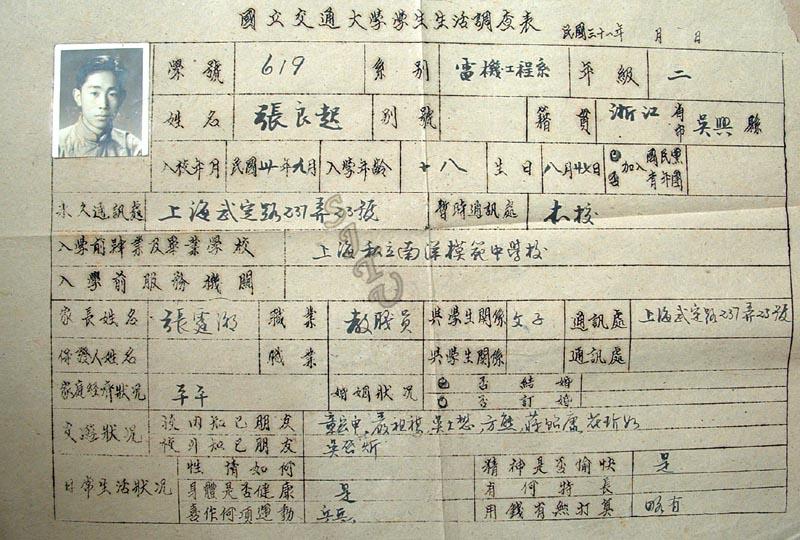 國立交通大學學生生活調查表 民國三十八年 月 日
學號 619 系別 電機工程系 年級 二
姓名 張良起 別號 籍貫 浙江 省市 吳興 縣
入校年月 民國卅年九月 入學年齡 十八 生日 八月廿七日 已否加入 國民黨 青年團
永久通訊處 上海武定路237弄23號 暫時通訊處 本校
入學前肄業及畢業學校 上海私立南洋模範中學校
入學前服務機關
家長姓名 職業 教職員 與學生關係 父子 通訊處 上海武定路237弄23號
保證人姓名 職業 與學生關係 通訊處
家庭經濟狀況 平平 婚姻狀況 已否結婚
已否訂婚
交遊狀況 校內知己朋友
校外知己朋友
日常生活狀況 性情如何 精神是否愉快 是
身體是否健康 是 有何特長
喜作何項運動 乒乓 用錢有無打算 略有